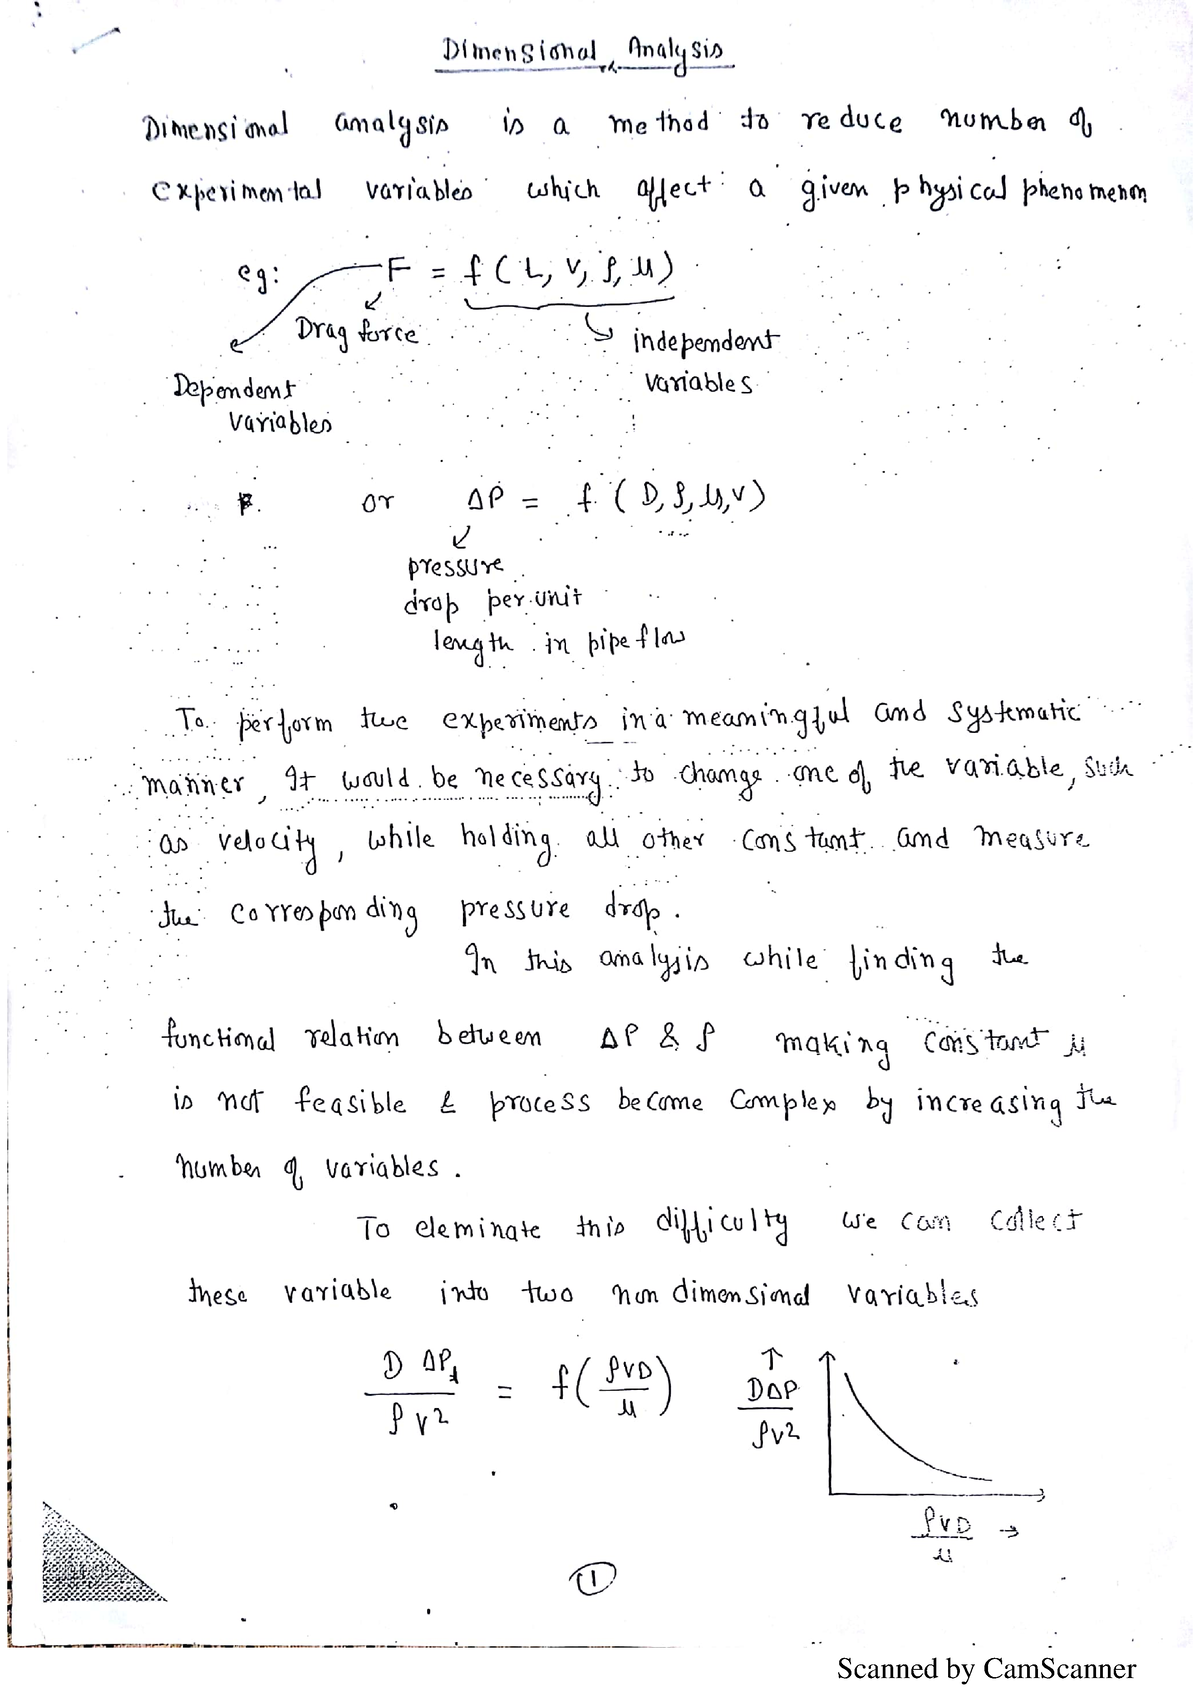 Dimensional Analysis
Dimensional analysis is a method to reduce number of
experimental variables which affect a given physical phenomenon
eg: F = f(L, V, ρ, μ)
Drag force
independent
variables
Dependent
variables
or ΔP = f(D, ρ, μ, v)
pressure
drop per unit
length in pipe flow
To perform the experiments in a meaningful and systematic
manner, It would be necessary to change one of the variable, such
as velocity, while holding all other constant and measure
the corresponding pressure drop.
In this analysis while finding the
functional relation between ΔP & ρ making constant μ
is not feasible & process become complex by increasing the
number of variables.
To eleminate this difficulty we can collect
these variable into two non dimensional variables
D ΔP₁ / ρ v² = f(ρVD / μ)
↑ DΔP / ρv²
ρVD / μ →
1
Scanned by CamScanner